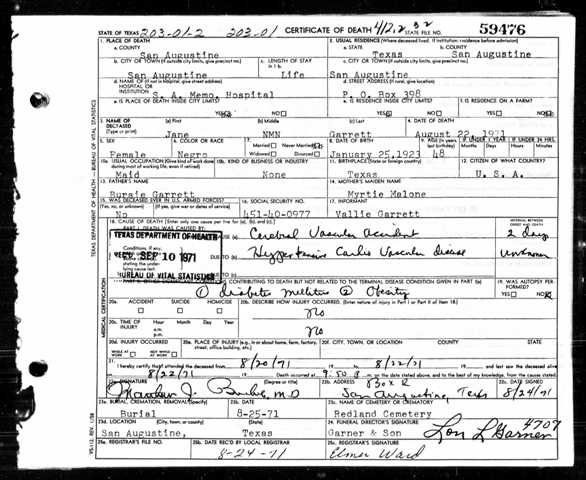 STATE OF TEXAS 203-01-2 203.01 CERTIFICATE OF DEATH STATE FILE NO. 59476
1. PLACE OF DEATH
a. COUNTY
San Augustine
2. USUAL RESIDENCE (Where deceased lived. If institution: residence before admission)
a. STATE b. COUNTY
Texas San Augustine
b. CITY OR TOWN (If outside city limits, give precinct no.) c. LENGTH OF STAY in 1 b.
San Augustine Life
c. CITY OR TOWN (If outside city limits, give precinct no.)
San Augustine
d. NAME OF (If not in hospital, give street address) HOSPITAL OR INSTITUTION
S. A. Memo. Hospital
d. STREET ADDRESS (If rural, give location)
P. O. Box 398
e. IS PLACE OF DEATH INSIDE CITY LIMITS?
YES NO
e. IS RESIDENCE INSIDE CITY LIMITS? f. IS RESIDENCE ON A FARM?
YES NO YES NO
3. NAME OF DECEASED (Type or print) (a) First (b) Middle (c) Last 4. DATE OF DEATH
Jane NMN Garrett August 22, 1971
5. SEX 6. COLOR OR RACE 7. Married Never Married Widowed Divorced 8. DATE OF BIRTH
Female Negro January 25,1923 48
10a. USUAL OCCUPATION (Give kind of work done during most of working life, even if retired) 10b. KIND OF BUSINESS OR INDUSTRY 11. BIRTHPLACE (State or foreign country) 12. CITIZEN OF WHAT COUNTRY?
Maid None Texas U. S. A.
13. FATHER'S NAME 14. MOTHER'S MAIDEN NAME
Bursie Garrett Myrtie Malone
15. WAS DECEASED EVER IN U.S. ARMED FORCES? 16. SOCIAL SECURITY NO. 17. INFORMANT
(Yes, no, or unknown) (If yes, give war or dates of service)
No 451-40-0977 Vallie Garrett
18. CAUSE OF DEATH (Enter only one cause per line for (a), (b), and (c).)
PART I. DEATH WAS CAUSED BY:
INTERVAL BETWEEN ONSET AND DEATH
Cerebral Vascular Accident 2 days
TEXAS DEPARTMENT OF HEALTH
REC'D SEP 10 1971
BUREAU OF VITAL STATISTICS
DUE TO (b) disease unknown
DUE TO (c)
CONTRIBUTING TO DEATH BUT NOT RELATED TO THE TERMINAL DISEASE CONDITION GIVEN IN PART I(a) 19. WAS AUTOPSY PERFORMED?
① diabetes mellitus ② Obesity YES NO
20a. ACCIDENT SUICIDE HOMICIDE 20b. DESCRIBE HOW INJURY OCCURRED. (Enter nature of injury in Part I or Part II of item 18.)
no
20c. TIME OF INJURY Hour Month Day Year
a.m.
p.m.
no
20d. INJURY OCCURRED 20e. PLACE OF INJURY (e.g., in or about home, farm, factory, street, office building, etc.) 20f. CITY, TOWN, OR LOCATION COUNTY STATE
WHILE AT WORK NOT WHILE AT WORK
21. I hereby certify that I attended the deceased from 8/20/71 19 to 8/22/71 19
8/22/71 19 Death occurred at 9:50 on the date stated above, and to the best of my knowledge, from the causes stated.
22a. SIGNATURE (Degree or title) 22b. ADDRESS 22c. DATE SIGNED
M.D. San Augustine, Texas 8/24/71
23a. BURIAL, CREMATION, REMOVAL (Specify) 23b. DATE 23c. NAME OF CEMETERY OR CREMATORY
Burial 8-25-71 Redland Cemetery
23d. LOCATION (City, town, or county) (State) 24. FUNERAL DIRECTOR'S SIGNATURE
San Augustine, Texas Garner & Son Lon L Garner 4707
25a. REGISTRAR'S FILE NO. 25b. DATE REC'D BY LOCAL REGISTRAR 25c. REGISTRAR'S SIGNATURE
8-24-71 Elmer Ward
TEXAS DEPARTMENT OF HEALTH — BUREAU OF VITAL STATISTICS
MEDICAL CERTIFICATION
VS-112, REV. 1/58